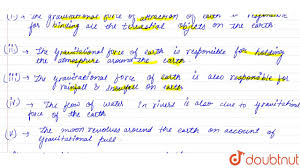 (i) → The gravitational force of attraction of earth is responsible
for binding all the terrestrial objects on the earth
(ii) → The gravitational force of earth is responsible for holding
the atmosphere around the earth
(iii) → The gravitational force of earth is also responsible for
rainfall & snowfall on earth
(iv) → The flow of water in rivers is also due to gravitational
force of the earth
(v) → The moon revolves around the earth on account of
gravitational pull
doubtnut